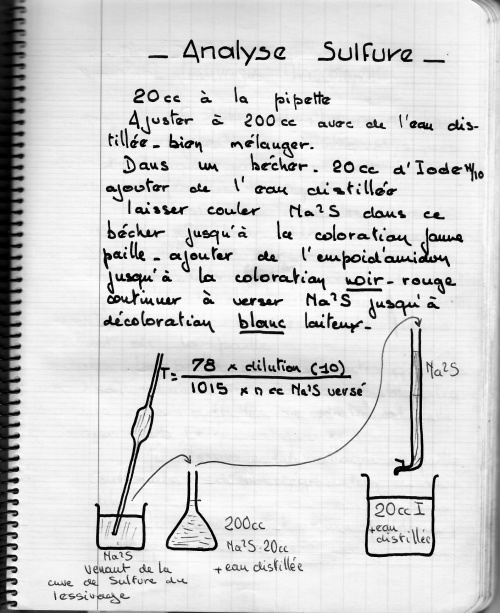 _ Analyse Sulfure _
20 cc à la pipette
Ajuster à 200 cc avec de l'eau dis-
tillée - bien mélanger.
Dans un bécher. 20 cc d'Iode N/10
ajouter de l'eau distillée
laisser couler Na²S dans ce
bécher jusqu'à la coloration jaune
paille - ajouter de l'empoid'amidon
jusqu'à la coloration noir - rouge
continuer à verser Na²S jusqu'à
décoloration blanc laiteux -
T = 78 x dilution (10)
1015 x n cc Na²S versé
Na²S
20cc I
+eau
distillée
200cc
Na²S. 20cc
+ eau distillée
Na²S
venant de la
cuve de Sulfure du
lessivage